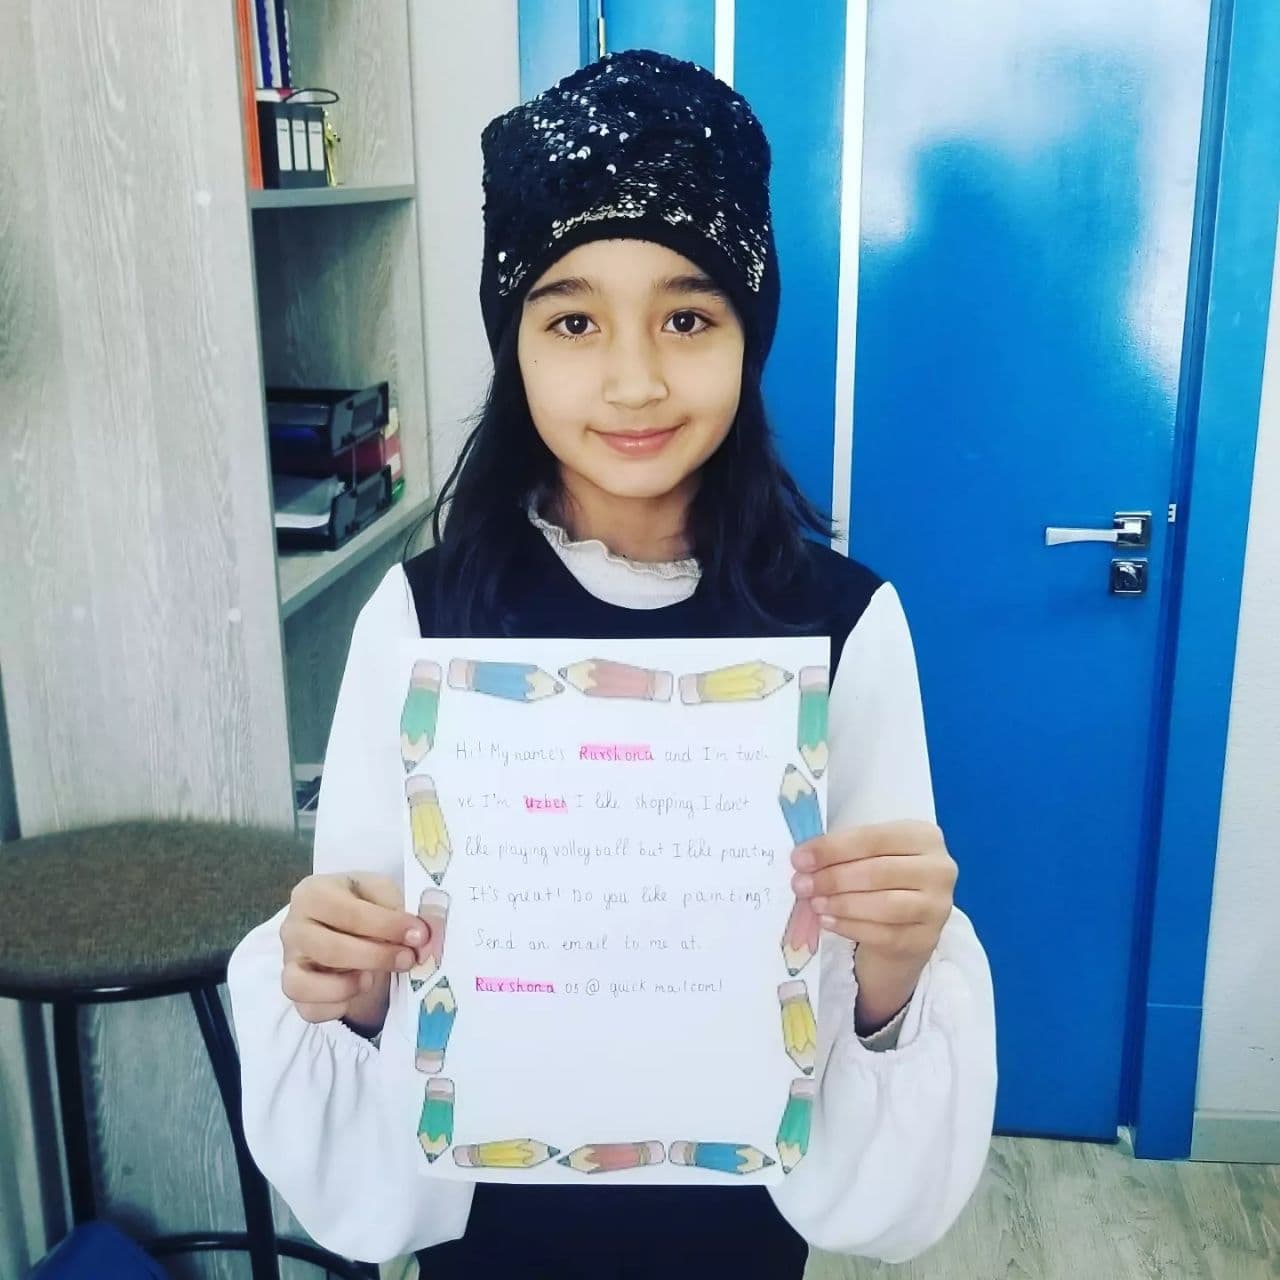 Hi! My name's Ruxshona and I'm twel-
ve I'm Uzbek I like shopping. I don't
like playing volleyball but I like painting
It's great! Do you like painting?
Send an email to me at.
Ruxshona 05 @ quick mail com!